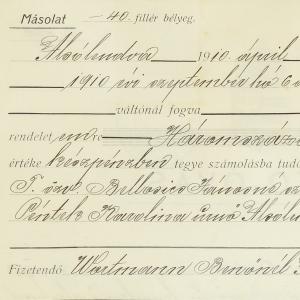 Másolat -40. fillér bélyeg.
Alsólendva 1910. április
1910 évi szeptember hó 6
váltónál fogva
rendelet emre Háromszáz
értéke készpénzben tegye számolásba tudó
T. özv. Bellosics Jánosné sz
Péntek Karolina úrnő Alsól
Fizetendő Wortmann Benőnél